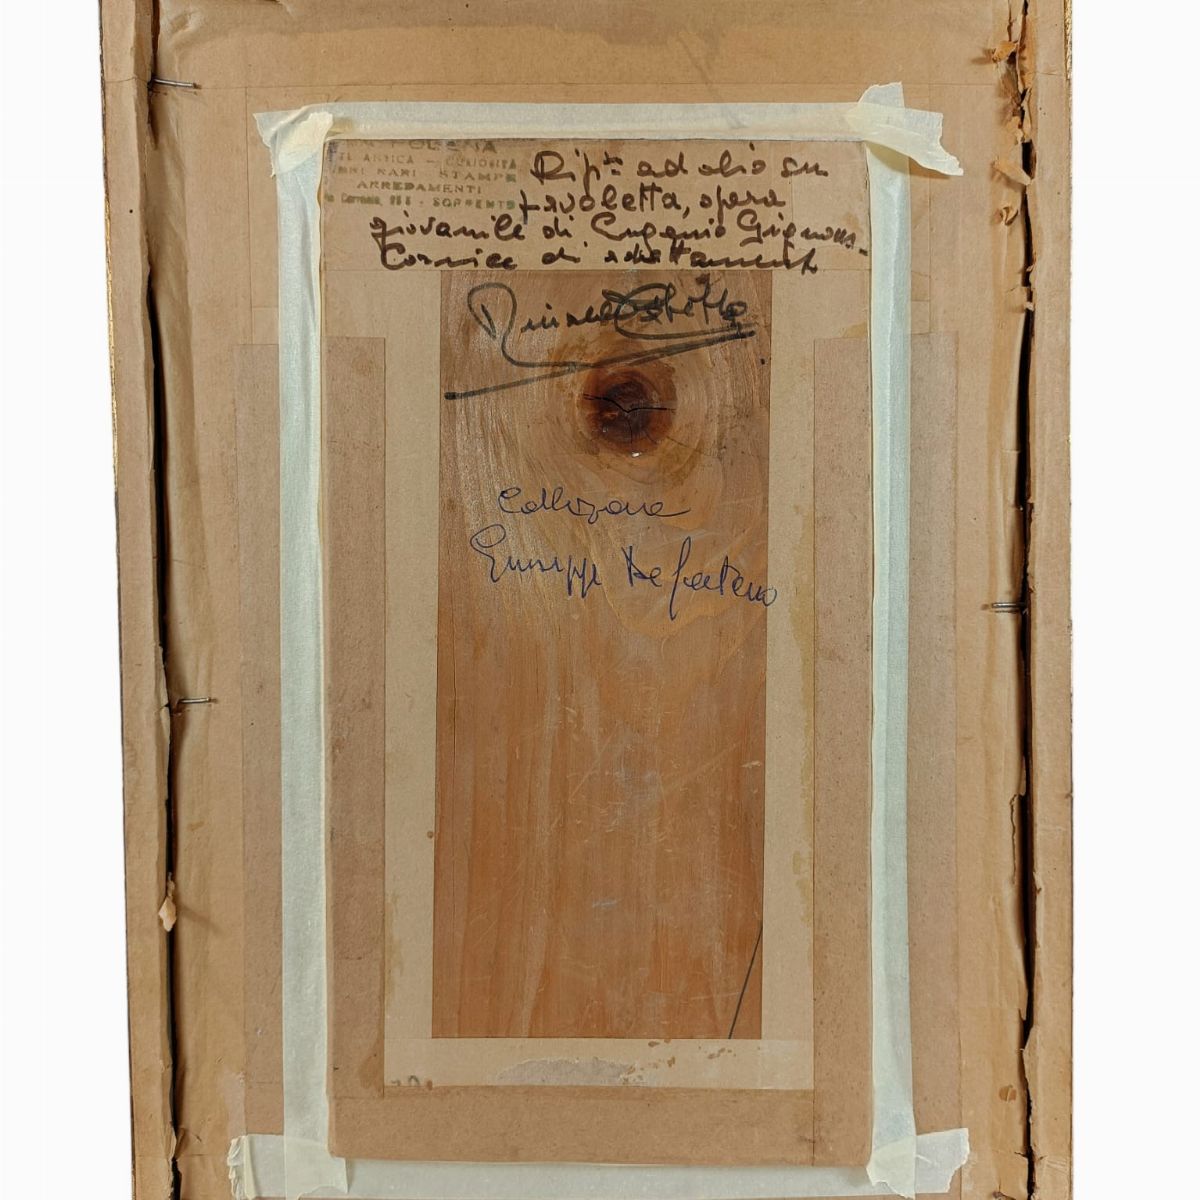 ARTE ANTICA — CURIOSITÀ
LIBRI RARI STAMPE
ARREDAMENTI
SORRENTO
Dip.to ad olio su
tavoletta, opera
giovanile di Eugenio Gignous.
Cornice di adattamento
Collezione
Giuseppe De Gaetano